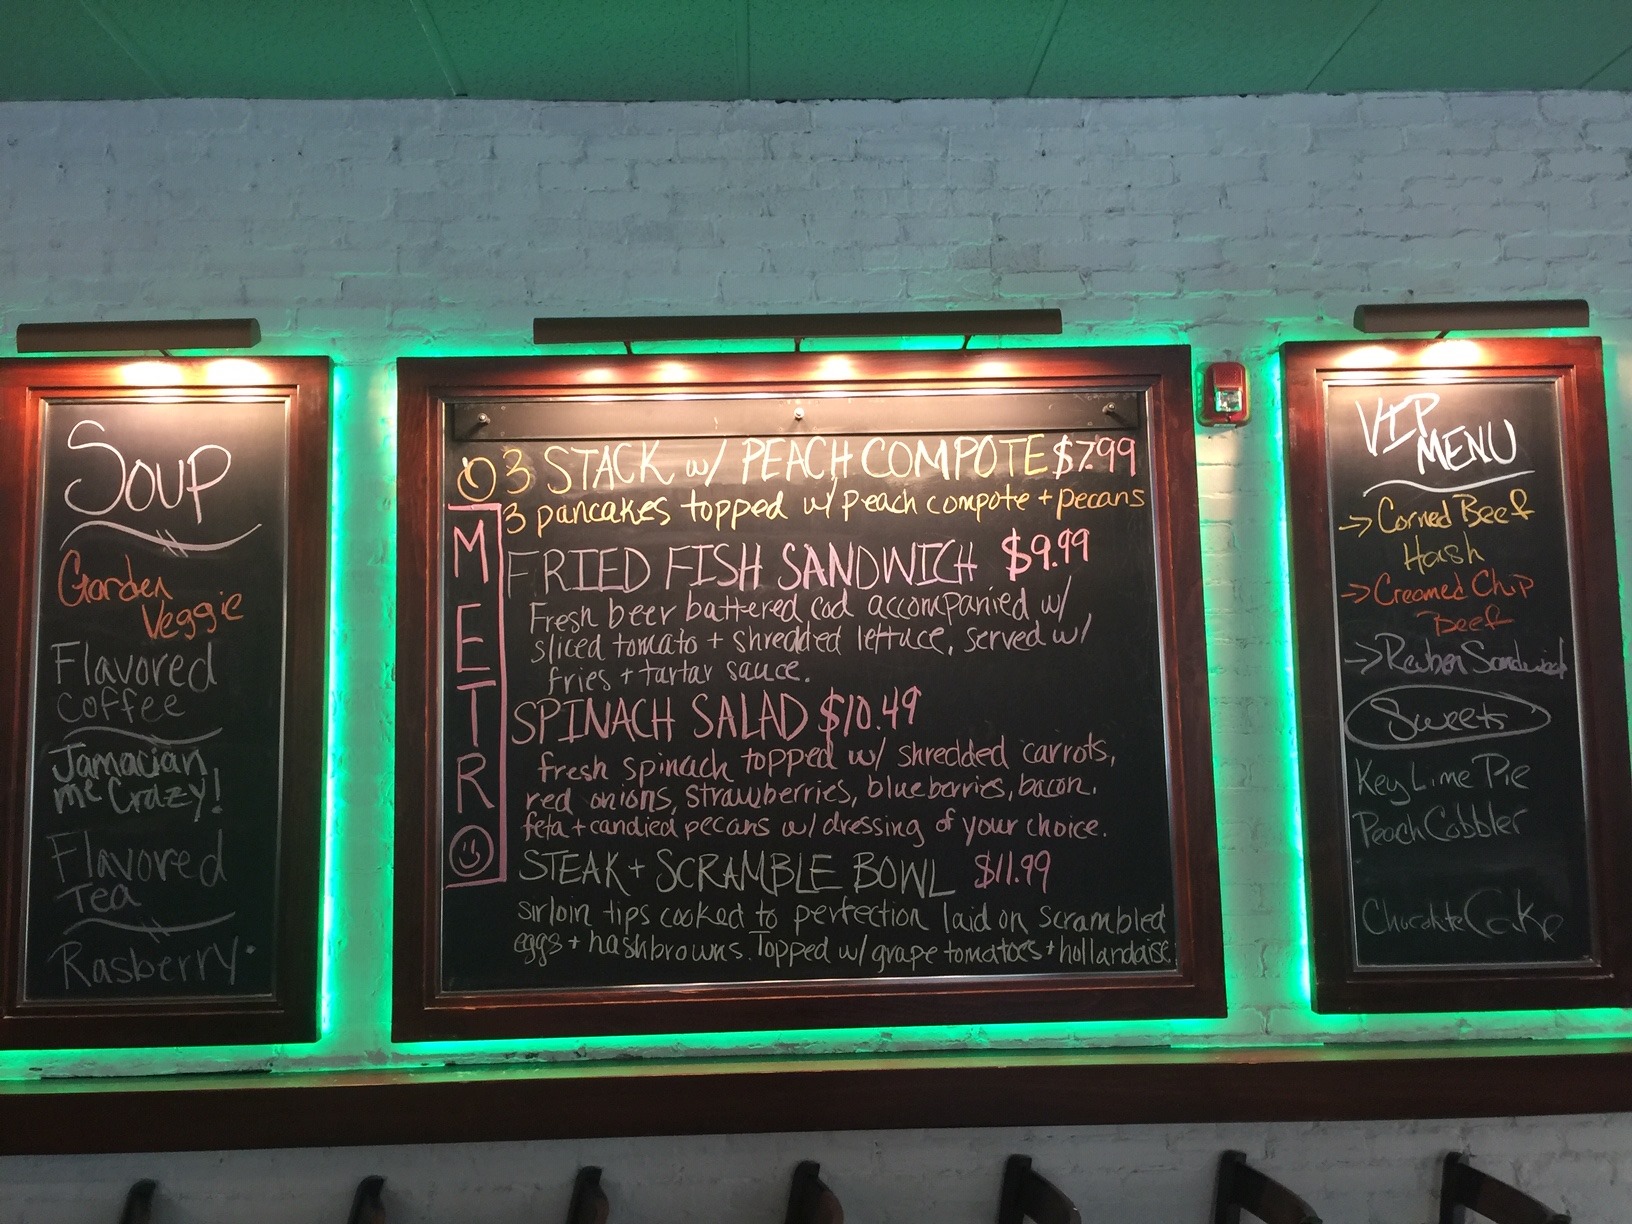 SOUP
Garden
Veggie
Flavored
Coffee
Jamacian
me Crazy!
Flavored
Tea
Rasberry.
METRO
3 STACK w/ PEACH COMPOTE $7.99
3 pancakes topped w/ peach compote + pecans
FRIED FISH SANDWICH $9.99
Fresh beer battered cod accompanied w/
sliced tomato + shredded lettuce, served w/
fries + tartar sauce.
SPINACH SALAD $10.49
fresh spinach topped w/ shredded carrots,
red onions, strawberries, blueberries, bacon,
feta + candied pecans w/ dressing of your choice.
STEAK + SCRAMBLE BOWL $11.99
sirloin tips cooked to perfection laid on scrambled
eggs + hashbrowns. Topped w/ grape tomatoes + hollandaise
VIP
MENU
-> Corned Beef
Hash
-> Creamed Chip
Beef
-> Reuben Sandwich
Sweets
Key Lime Pie
Peach Cobbler
Chocolate Cake